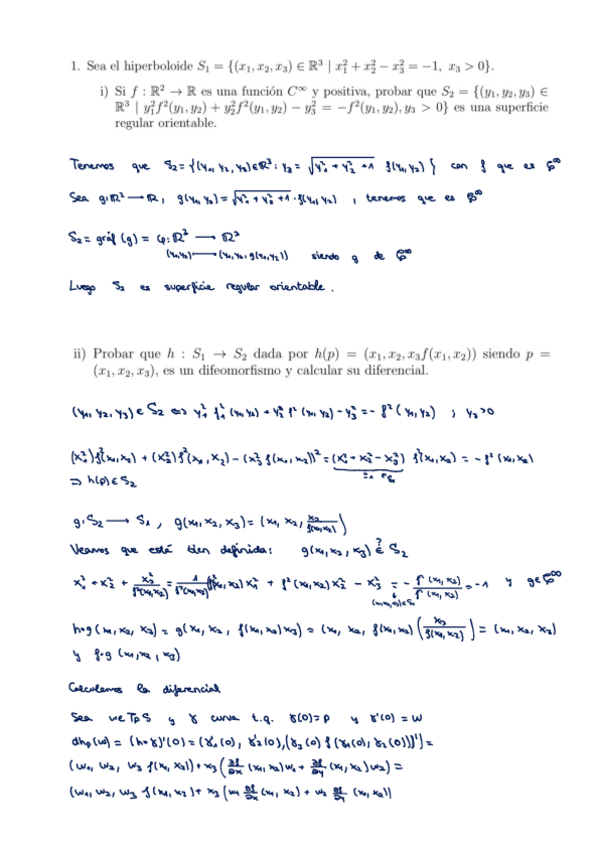 1. Sea el hiperboloide S₁ = {(x₁, x₂, x₃) ∈ ℝ³ | x₁² + x₂² − x₃² = −1, x₃ > 0}.
i) Si f : ℝ² → ℝ es una función C^∞ y positiva, probar que S₂ = {(y₁, y₂, y₃) ∈
ℝ³ | y₁²f²(y₁, y₂) + y₂²f²(y₁, y₂) − y₃² = −f²(y₁, y₂), y₃ > 0} es una superficie
regular orientable.
Tenemos que S₂ = {(y₁, y₂, y₃) ∈ ℝ³ : y₃ = √(y₁² + y₂² + 1) f(y₁, y₂)} con f que es C^∞
Sea g: ℝ² → ℝ, g(y₁, y₂) = √(y₁² + y₂² + 1) · f(y₁, y₂), tenemos que es C^∞
S₂ = gráf (g) = φ: ℝ² → ℝ³
(y₁, y₂) → (y₁, y₂, g(y₁, y₂)) siendo g de C^∞
Luego S₂ es superficie regular orientable.
ii) Probar que h : S₁ → S₂ dada por h(p) = (x₁, x₂, x₃f(x₁, x₂)) siendo p =
(x₁, x₂, x₃), es un difeomorfismo y calcular su diferencial.
(y₁, y₂, y₃) ∈ S₂ ⇔ y₁² f²(y₁, y₂) + y₂² f²(y₁, y₂) − y₃² = − f²(y₁, y₂) ; y₃ > 0
(x₁²) f²(x₁, x₂) + (x₂²) f²(x₁, x₂) − (x₃² f(x₁, x₂))² = (x₁² + x₂² − x₃²) f²(x₁, x₂) = − f²(x₁, x₂)
⇒ h(p) ∈ S₂
g: S₂ → S₁, g(x₁, x₂, x₃) = (x₁, x₂, x₃/f(x₁, x₂))
Veamos que está bien definida: g(x₁, x₂, x₃) ∈? S₂
x₁² + x₂² + x₃²/f²(x₁, x₂) = 1/f²(x₁, x₂) (f²(x₁, x₂) x₁² + f²(x₁, x₂) x₂² − x₃² = − f²(x₁, x₂)/f²(x₁, x₂) = −1 y g ∈ C^∞
h∘g (x₁, x₂, x₃) = g(x₁, x₂, f(x₁, x₂) x₃) = (x₁, x₂, f(x₁, x₂) (x₃/f(x₁, x₂)) = (x₁, x₂, x₃)
y f∘g (x₁, x₂, x₃)
Calculemos la diferencial
Sea w ∈ TpS y γ curva t.q. γ(0) = p y γ'(0) = w
dhp(w) = (h∘γ)'(0) = (γ₁'(0), γ₂'(0), (γ₃(0) f(γ₁(0), γ₂(0)))') =
(w₁, w₂, w₃ f(x₁, x₂)) + x₃ (∂f/∂x (x₁, x₂) w₁ + ∂f/∂y (x₁, x₂) w₂) =
(w₁, w₂, w₃ f(x₁, x₂) + x₃ (w₁ ∂f/∂x (x₁, x₂) + w₂ ∂f/∂y (x₁, x₂))